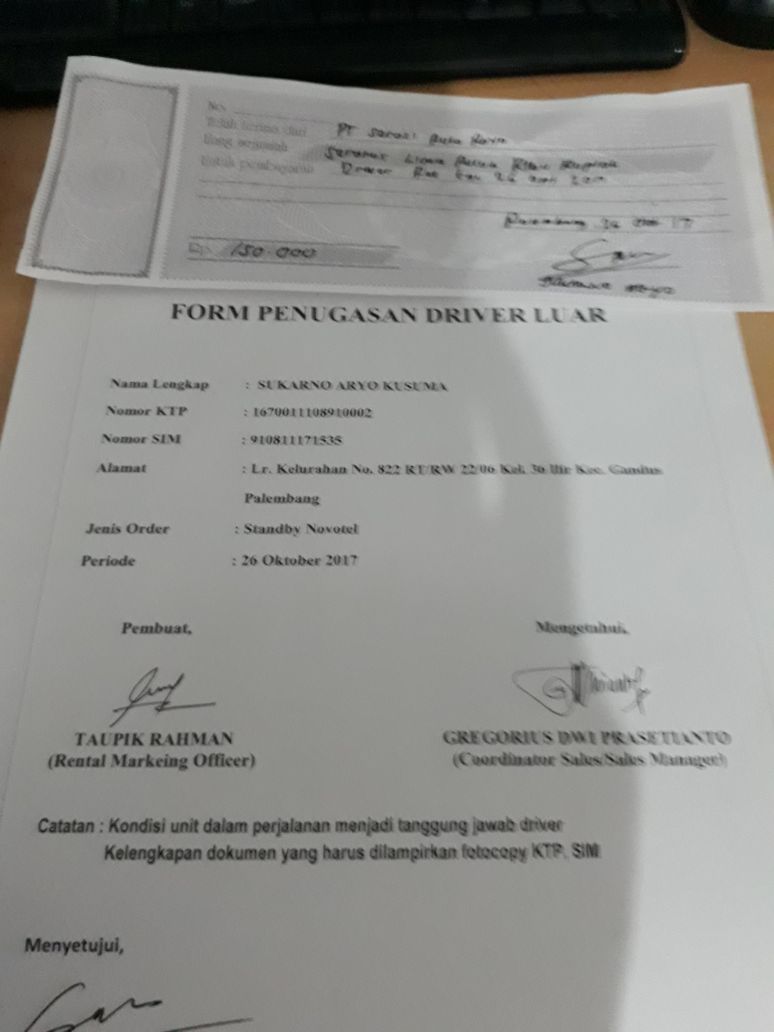 No.
Telah terima dari PT Serasi Auto Raya
Uang sejumlah Seratus Lima Puluh Ribu Rupiah
Untuk pembayaran Driver
Rp. 150.000
FORM PENUGASAN DRIVER LUAR
Nama Lengkap : SUKARNO ARYO KUSUMA
Nomor KTP : 1670011108910002
Nomor SIM : 910811171535
Alamat : Lr. Kelurahan No. 822 RT/RW 22/06 Kel. 36 Ilir Kec. Gandus
Palembang
Jenis Order : Standby Novotel
Periode : 26 Oktober 2017
Pembuat, Mengetahui,
TAUPIK RAHMAN GREGORIUS DWI PRASETIANTO
(Rental Markeing Officer) (Coordinator Sales/Sales Manager)
Catatan : Kondisi unit dalam perjalanan menjadi tanggung jawab driver
Kelengkapan dokumen yang harus dilampirkan fotocopy KTP, SIM
Menyetujui,